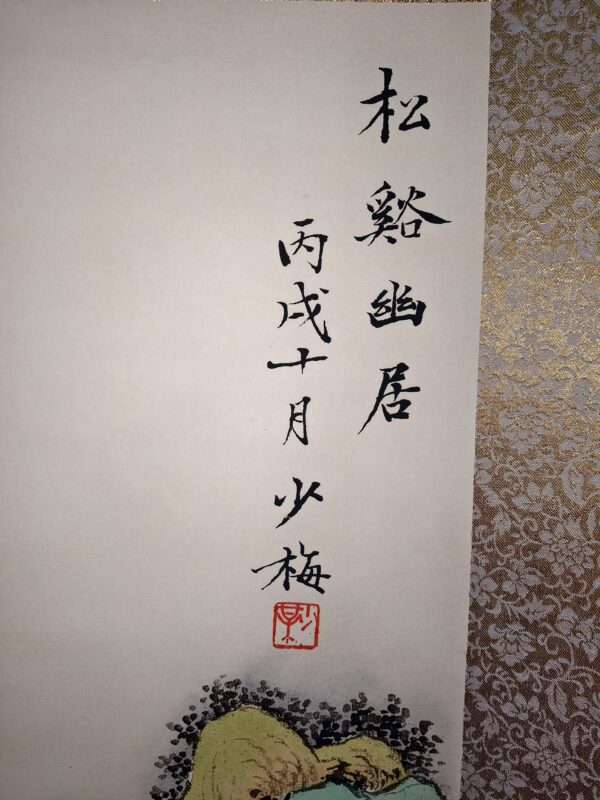 松谿幽居
丙戌十月少梅
少某